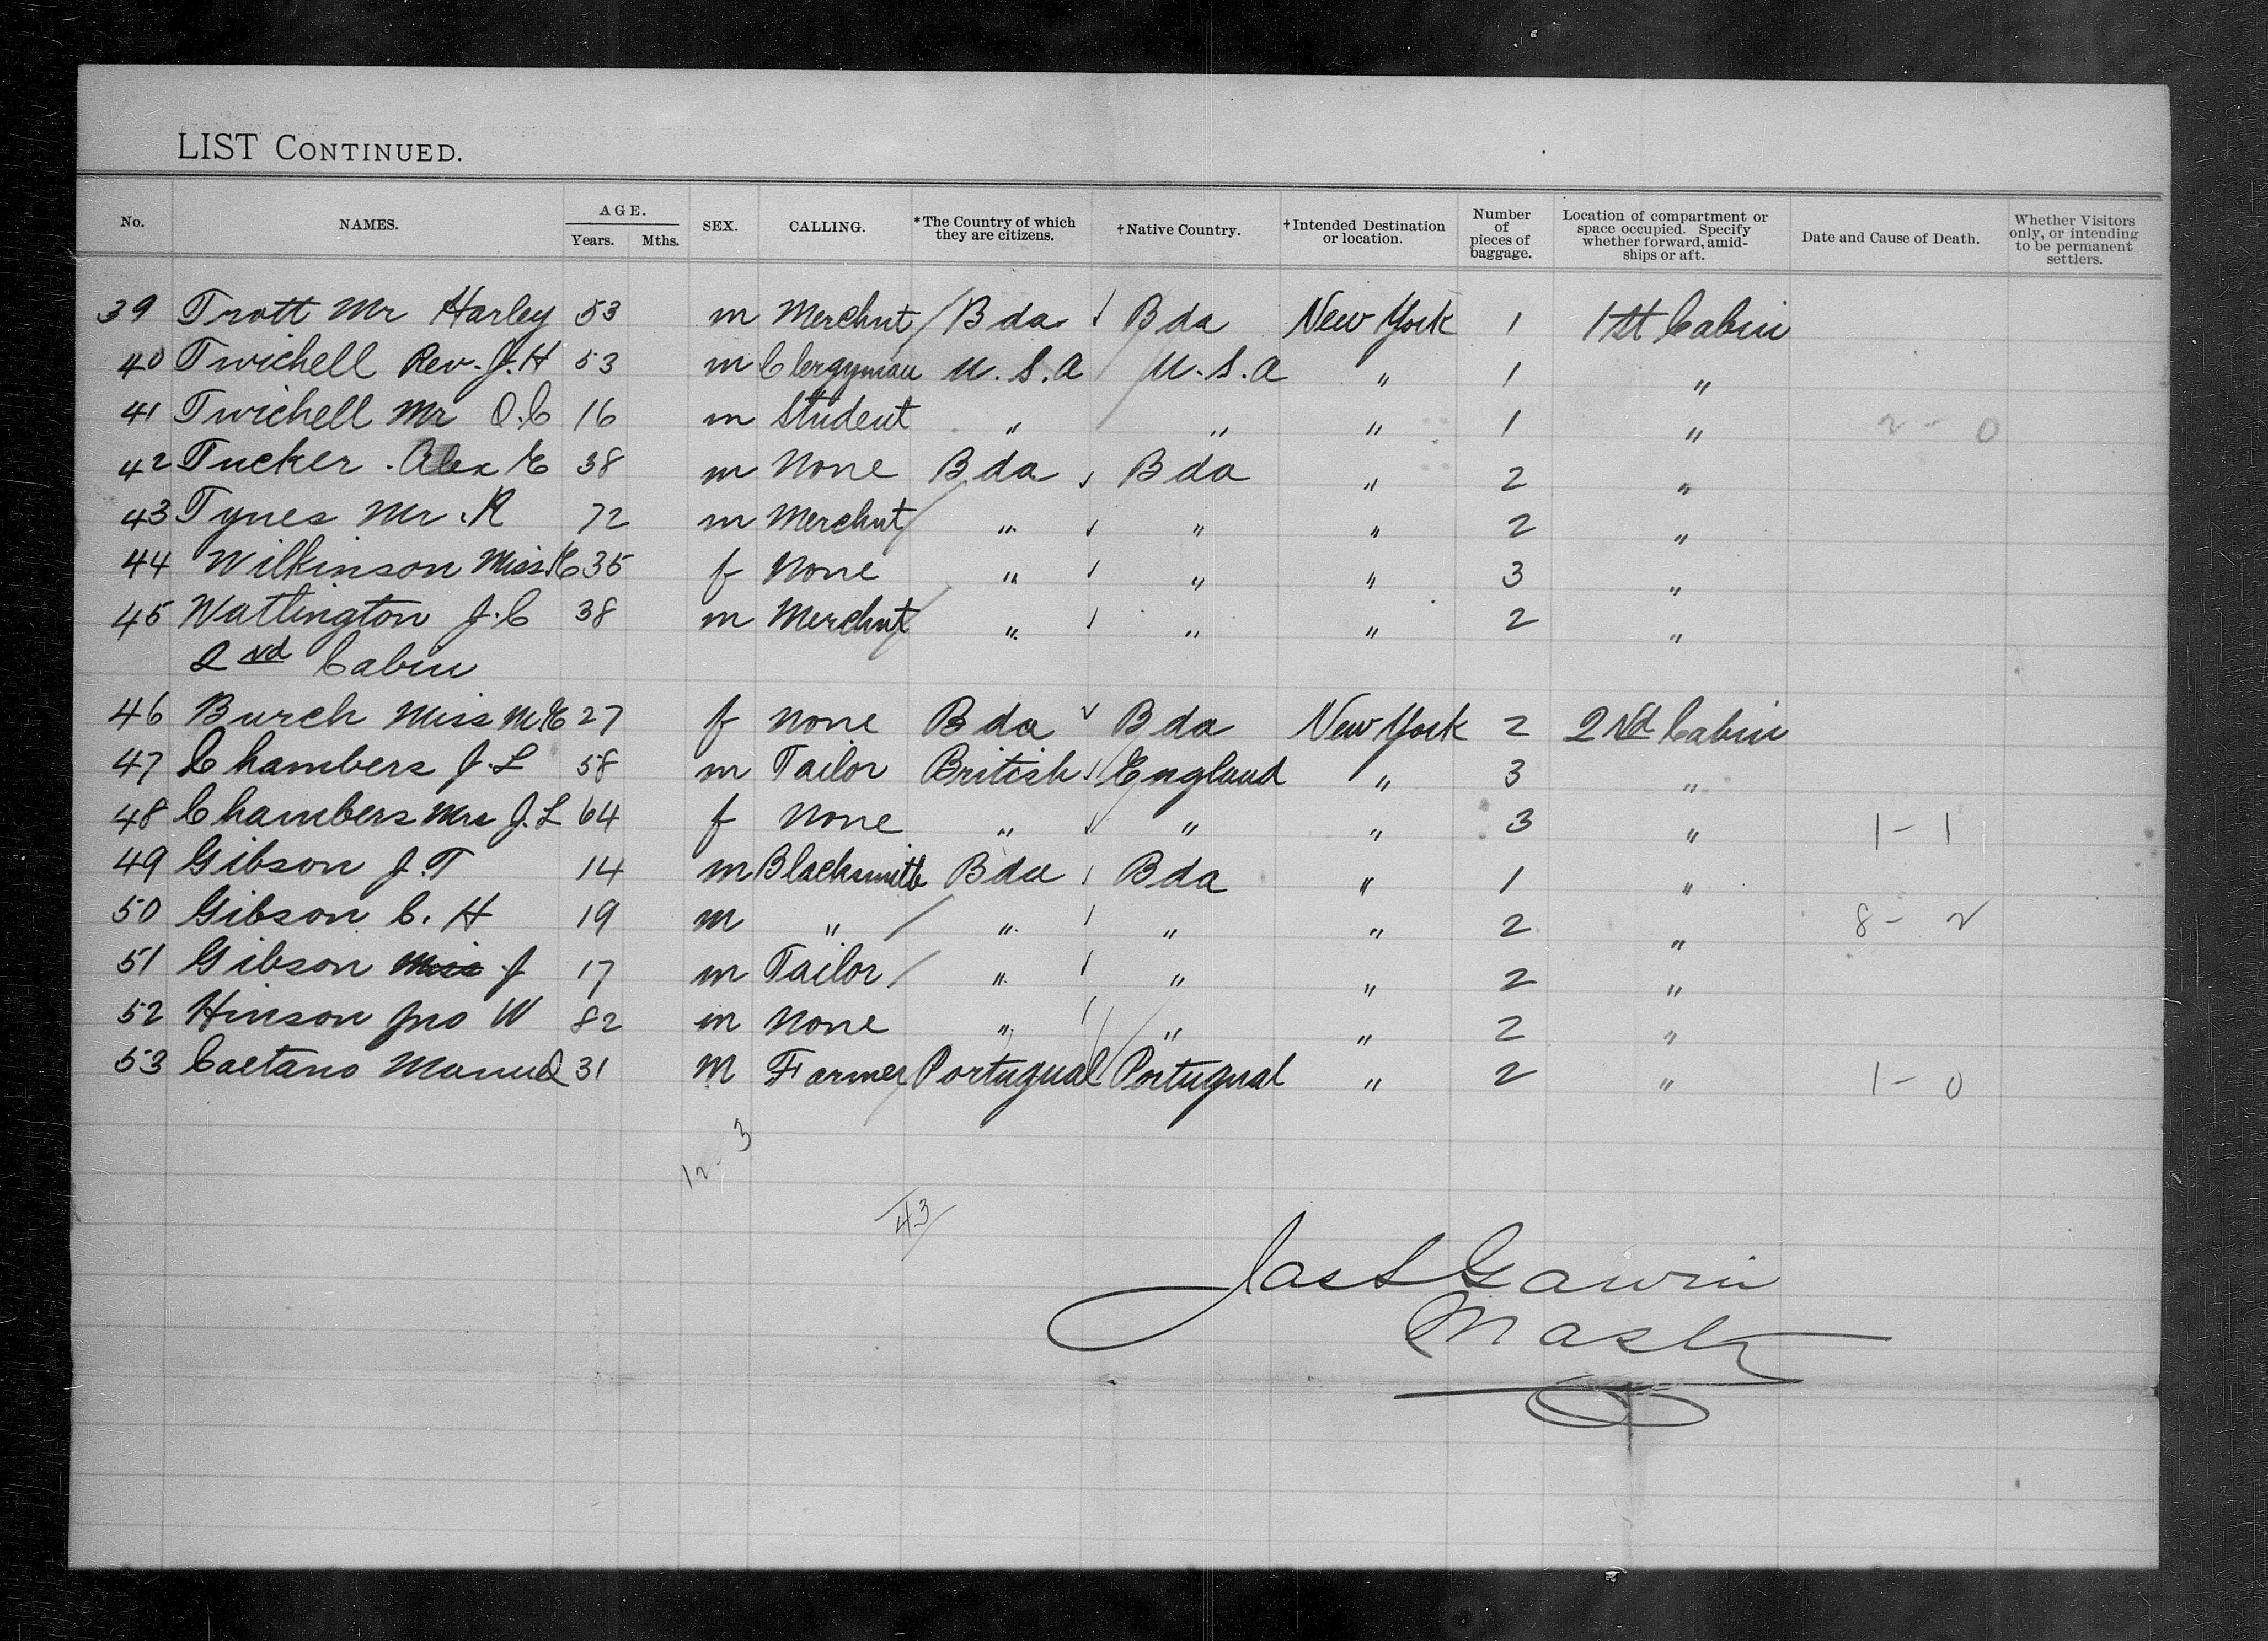 LIST CONTINUED.
No. NAMES. AGE. Years. Mths. SEX. CALLING. *The Country of which they are citizens. †Native Country. †Intended Destination or location. Number of pieces of baggage. Location of compartment or space occupied. Specify whether forward, amid-ships or aft. Date and Cause of Death. Whether Visitors only, or intending to be permanent settlers.
39 Trott Mr Harley 53 m Merchnt Bda Bda New York 1 1st Cabin
40 Twichell Rev. J. H 53 m Clergyman U. S. A U. S. A " 1 "
41 Twichell Mr D. C 16 m Student " " " 1 " 2 - 0
42 Tucker Alex E 38 m None Bda Bda " 2 "
43 Tynes Mr. R 72 m Merchnt " " " 2 "
44 Wilkinson Miss E 35 f None " " " 3 "
45 Watlington J. C 38 m Merchnt " " " 2 "
2nd Cabin
46 Burch Miss M. E 27 f None Bda Bda New York 2 2nd Cabin
47 Chambers J. L 58 m Tailor British England " 3 "
48 Chambers Mrs J. L 64 f None " " " 3 " 1 - 1
49 Gibson J. T 14 m Blacksmith Bda Bda " 1 "
50 Gibson C. H 19 m " " " " 2 " 8 - 2
51 Gibson Miss J 17 m Tailor " " " 2 "
52 Hinson Jno W 82 m None " " " 2 "
53 Caetano Manuel 31 m Farmer Portugual Portugual " 2 " 1 - 0
12 - 3
43
Jas S Garvin
Master